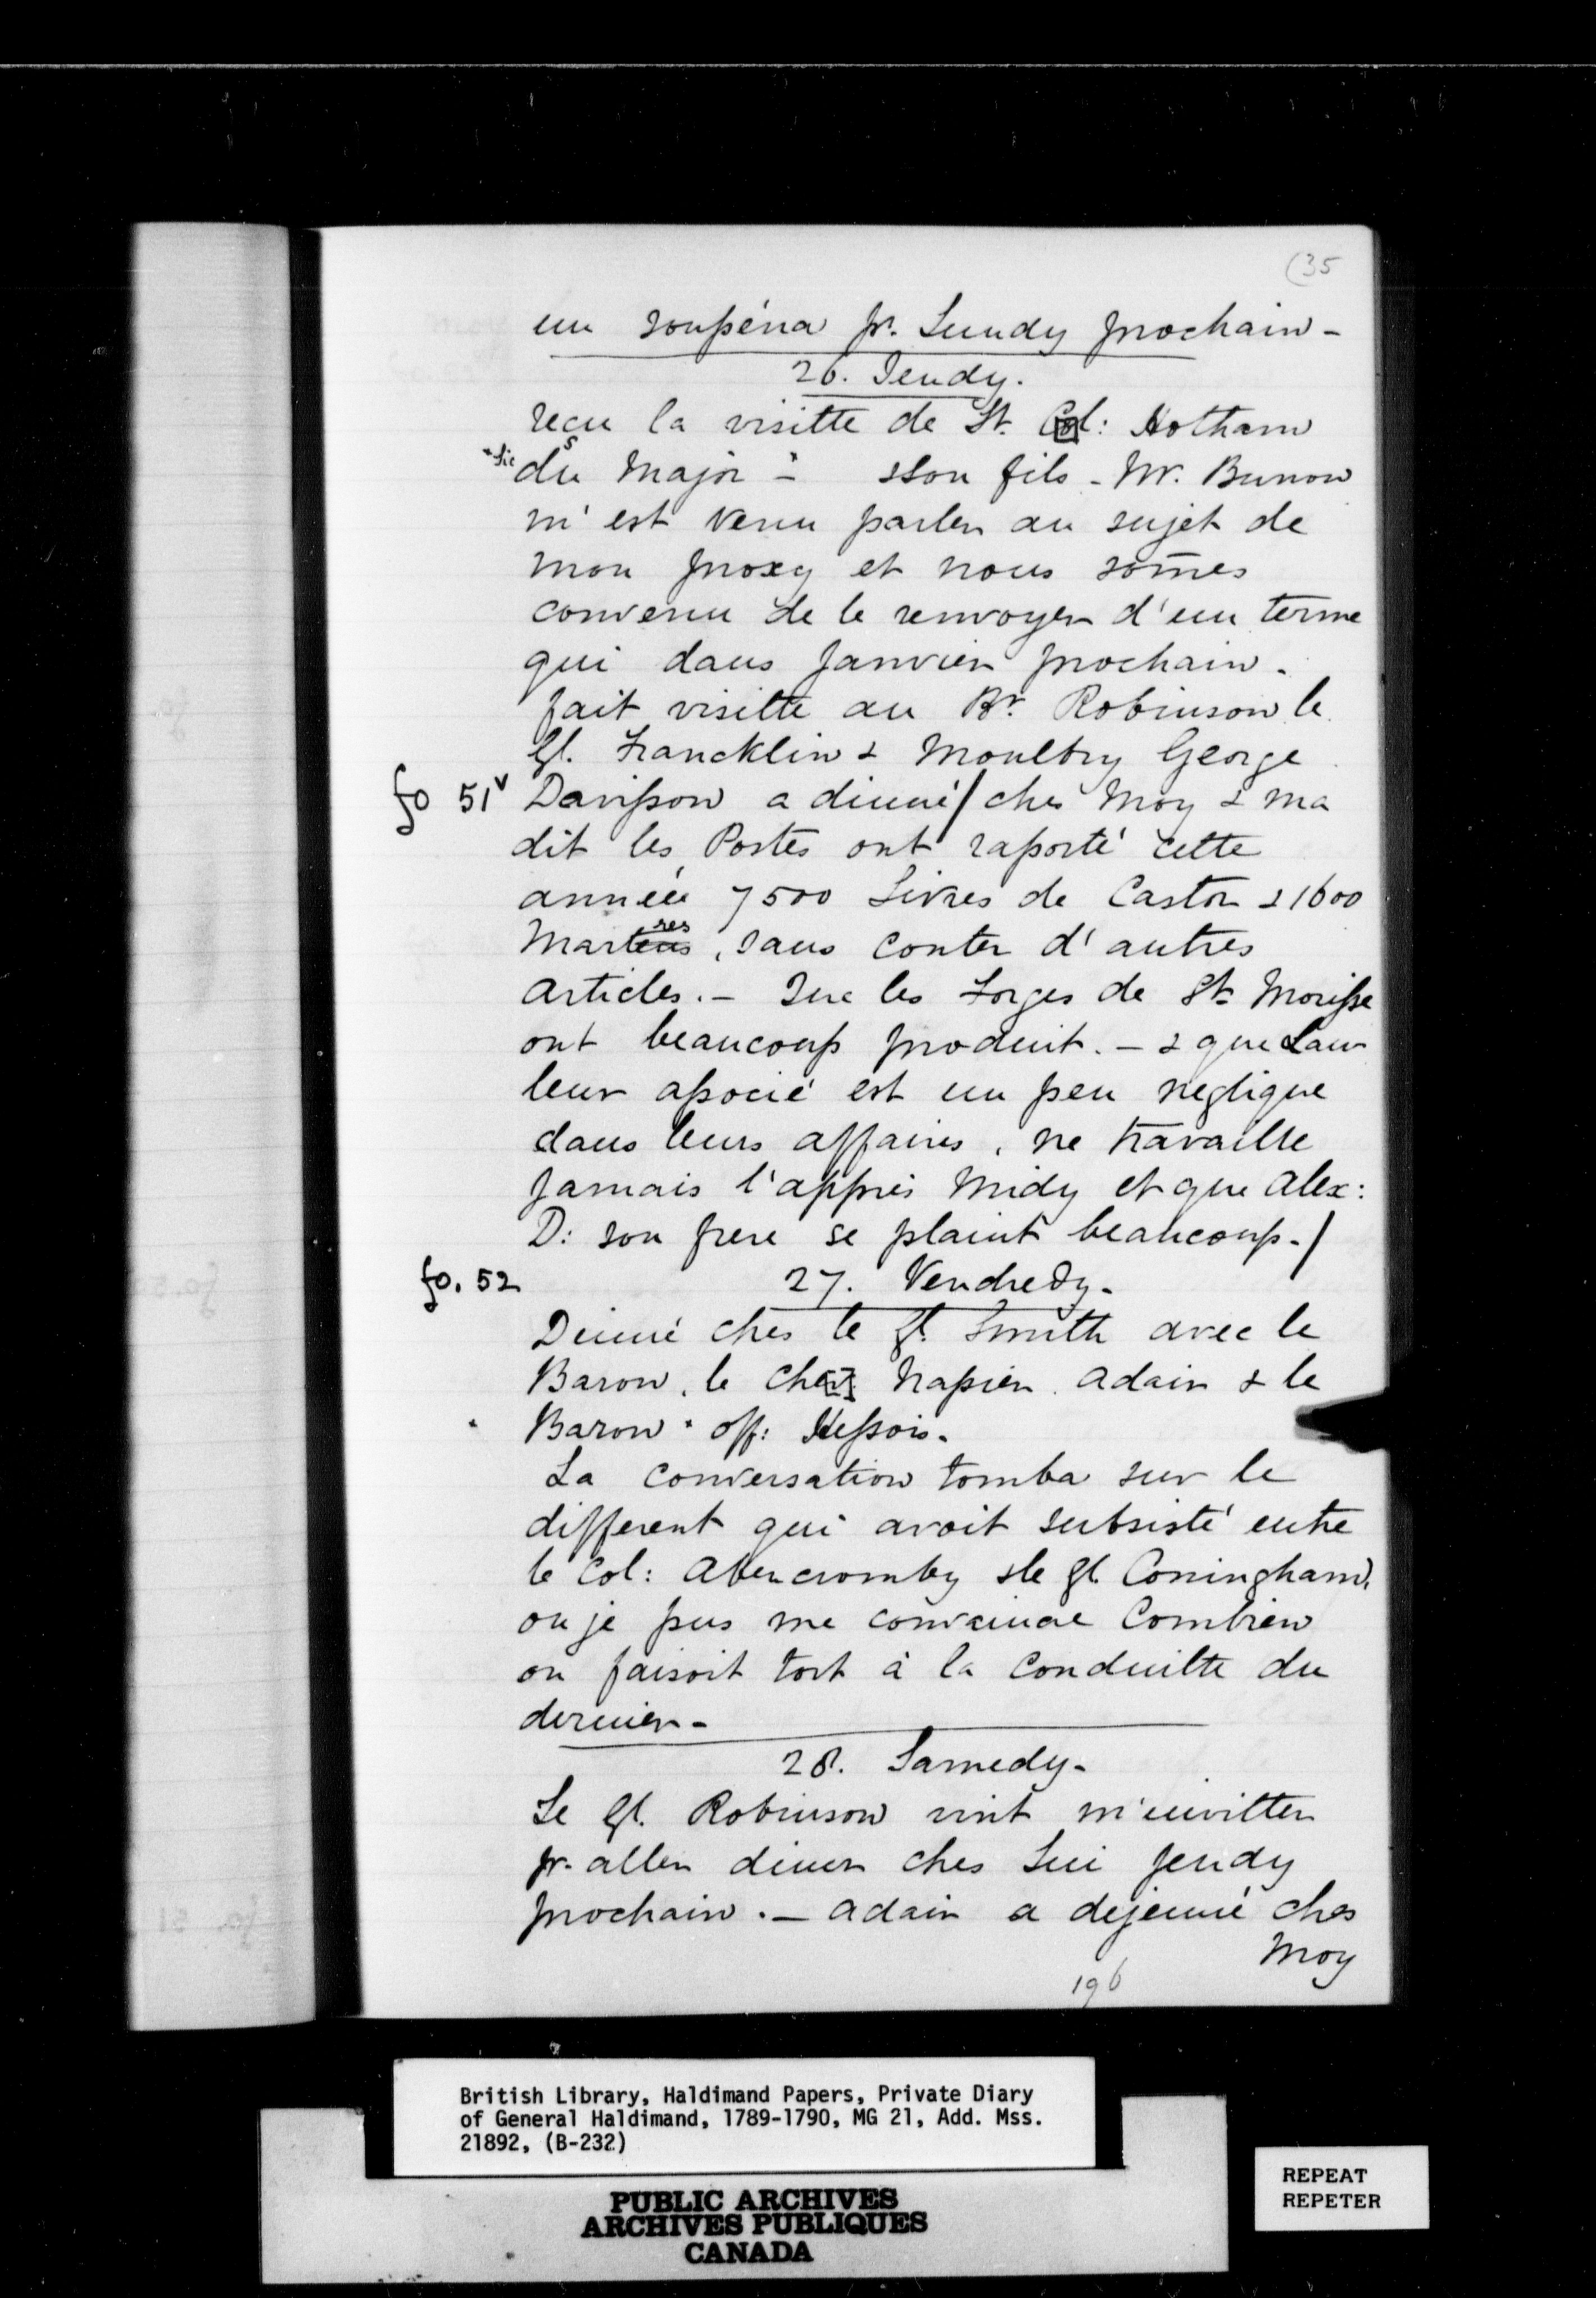 (35
un soupéna pr. Lundy prochain -
26. Jeudy.
recu la visitte de Lt. Col: Hotham
*Sic du Major - * & son fils - Mr. Bunow
m'est venu parler au sujet de
mon proxy et nous som̃es
convenu de le renvoyer d'un terme
qui dans Janvier prochain.
fait visitte au Br. Robinson le
Gl. Francklin & Moultry George
fo 51v Davisson a dinné / ches Moy & ma
dit les Postes ont raporté cette
année 7500 Livres de Castor & 1600
Martres, sans conter d'autres
articles. - Que les Forges de St. Morisse
ont beaucoup produit. - & que Law
leur associé est un peu negligue
dans leurs affaires, ne travaille
Jamais l'appres Midy et que Alex:
D: son frere se plaint beaucoup. /
fo. 52 27. Vendredy.
Dinné ches le Gl. Smith avec le
Baron, le Chev. Napier. Adair & le
* Baron * off: Hessois.
La conversation tomba sur le
different qui avoit subsisté entre
le Col: Abercromby & le Gl. Coningham,
ou je pus me convaincre Combien
on faisoit tort à la Conduitte du
dernier -
28. Samedy.
Le Gl. Robinson vint m'invitter
pr. aller diner ches Lui Jeudy
prochain. - Adair a dejeuné ches
Moy
196
British Library, Haldimand Papers, Private Diary
of General Haldimand, 1789-1790, MG 21, Add. Mss.
21892, (B-232)
PUBLIC ARCHIVES
ARCHIVES PUBLIQUES
CANADA
REPEAT
REPETER